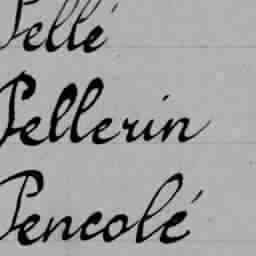 Pellé
Pellerin
Pencolé